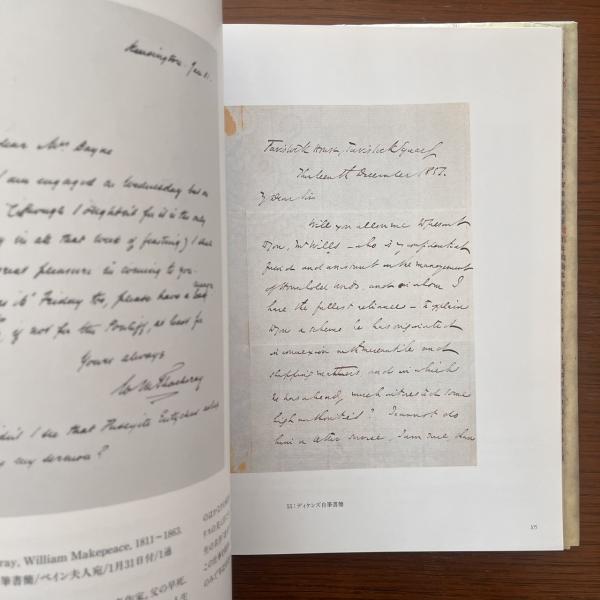 Kensington. Jan 31.
dear Mrs Bayne
I am engaged on Wednesday but on
(though I oughtn't for it is the only
in all that week of feasting) I shall
great pleasure in coming to you.
Friday the, please have a
if not for the Pontiff, at least for
Yours always
W M Thackeray
I see that Puseyite Eutyches
my sermon?
ray, William Makepeace, 1811－1863.
筆書簡/ベイン夫人宛/1月31日付/1通
作家。父の早死、
Tavistock House, Tavistock Square
Thirteenth December 1857.
My dear Sir
Will you allow me to present
to you, Mr Wills – who is my confidential
friend and assistant in the management
of Household Words, and in whom I
have the fullest reliance – to explain
to you a scheme he has originated
in connexion with mercantile and
shipping matters and in which
he has already much interested some
high authorities? I cannot do
him a better service, I am sure, than
55：ディケンズ自筆書簡
105